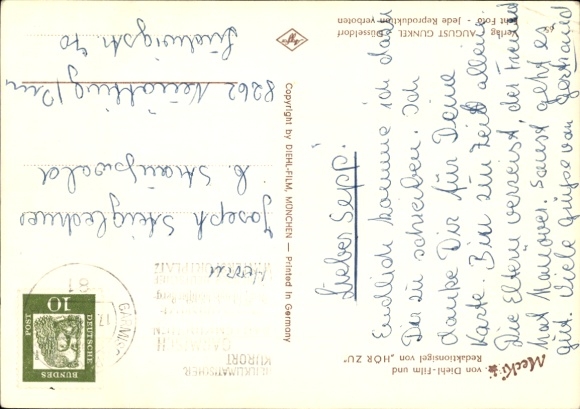 Mecki
von Diehl-Film und
Redaktionsigel von „HÖR ZU"
Lieber Sepp!
Endlich komme ich dazu
Dir zu schreiben. Ich
danke Dir für Deine
Karte. Bin zur Zeit allein.
Die Eltern verreist, der Freund
hat Manöver. Sonst geht es
gut. Viele Grüße von Gertraud
Verlag AUGUST GUNKEL Düsseldorf
Echt Foto - Jede Reproduktion verboten
Agfa
Copyright by DIEHL-FILM, MÜNCHEN — Printed in Germany
HEILKLIMATISCHER
KURORT
Herrn
Joseph
b.
8262
Ludwigstr. 40
10
DEUTSCHE
BUNDES
POST